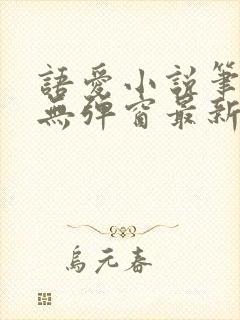 語愛小說筆
無彈窗最新
烏元春